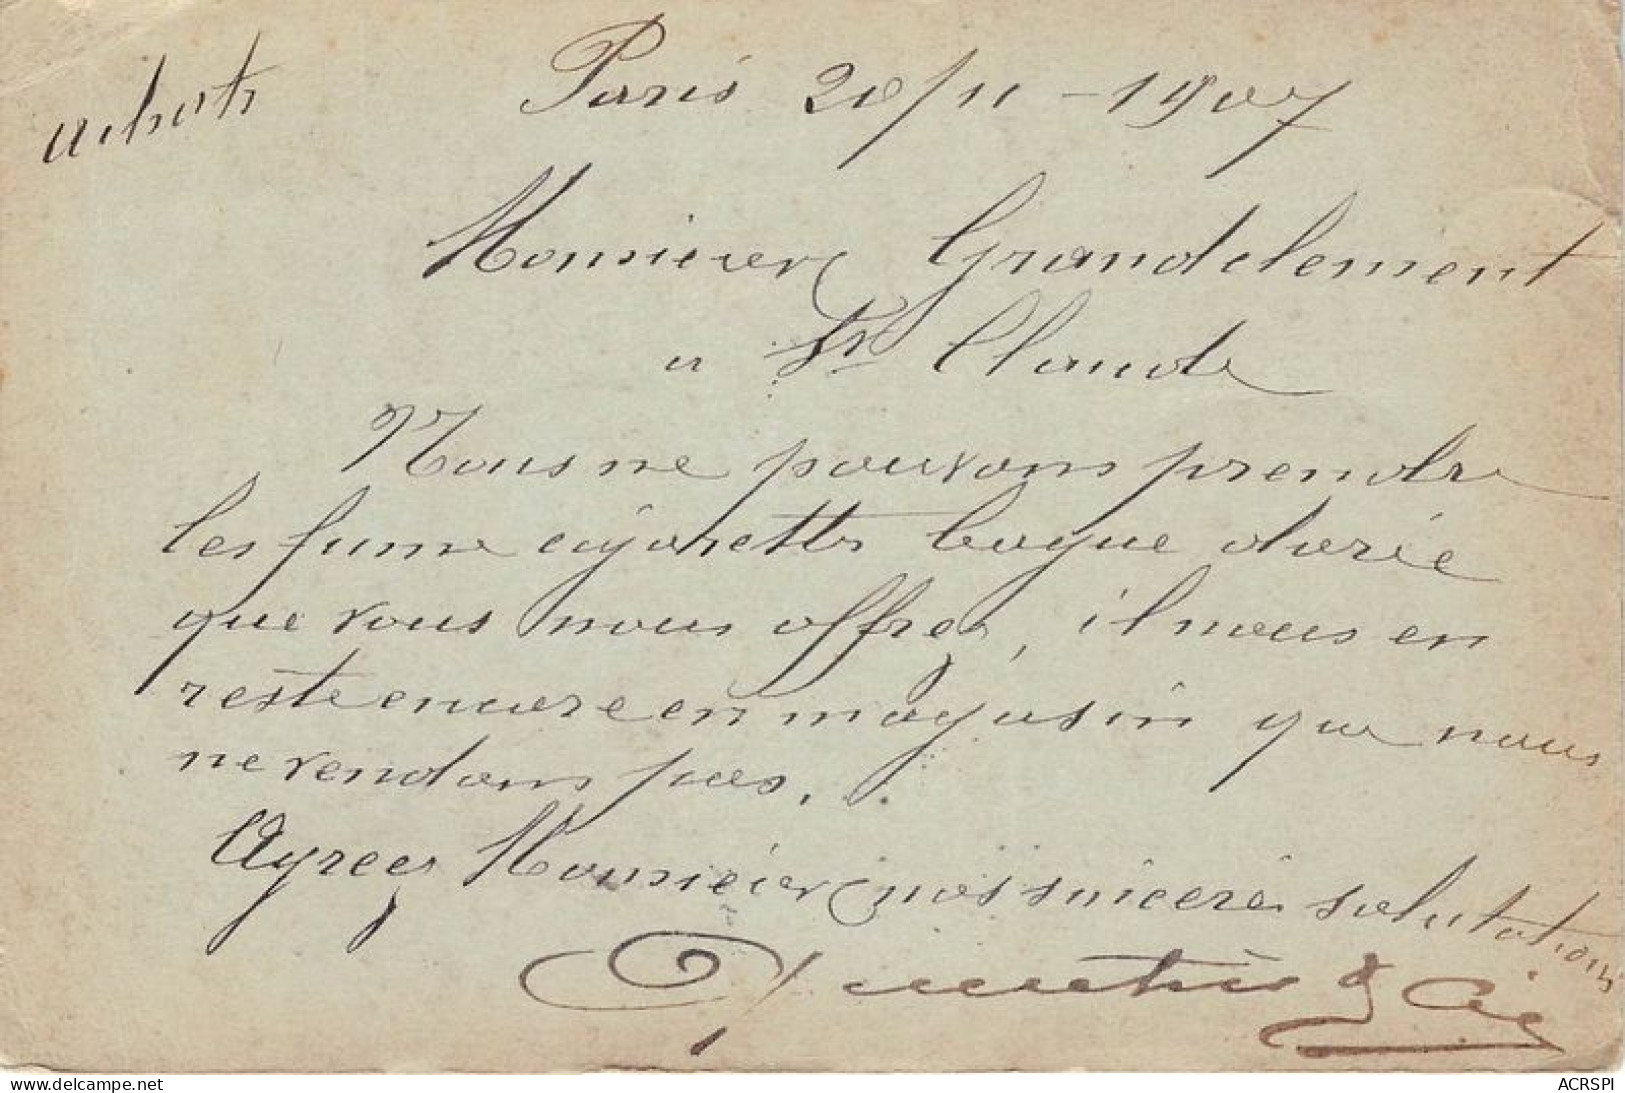 achats
Paris 20/11 - 1907
Monsieur Grandclement
a St Claude
Nous ne pouvons prendre
les fume cigarettes bague dorée
que vous nous offrez, il nous en
reste encore en magasin que nous
ne vendons pas.
Agreez Monsieur nos sincères salutations
& Cie
www.delcampe.net
ACRSPI